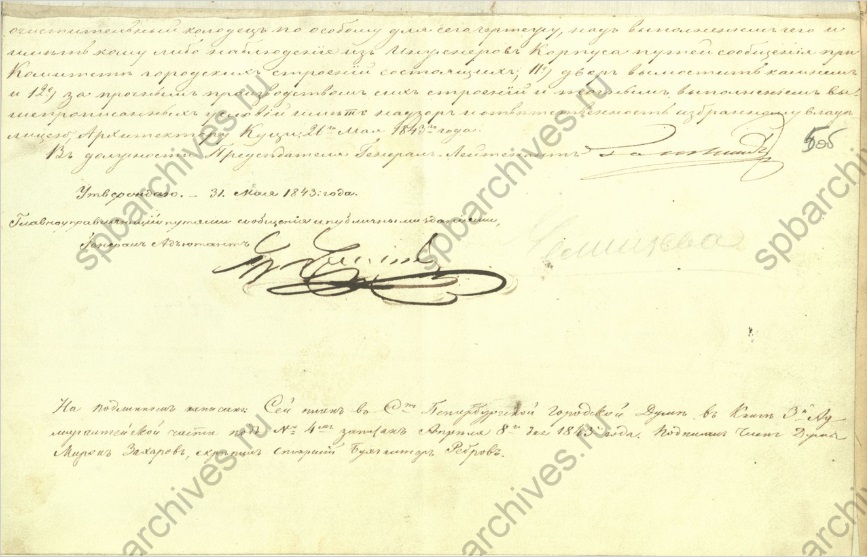 очистительный колодезь по особому для сего чертежу, надъ выполненіемъ чего и
имѣть кому либо наблюденіе изъ Инженеровъ Корпуса путей сообщенія при
Комитетѣ городскихъ строеній состоящихъ; 11е) дворъ вымостить камнемъ
и 12е) за прочнымъ производствомъ сихъ строеній и точнымъ выполненіемъ вы-
шепрописанныхъ условій имѣть надзоръ и отвѣтственность избранному владѣ-
лицею, Архитектору Куци; 26го Мая 1843го года.
Въ должности Предсѣдателя Генералъ Лейтенантъ
5об
Утверждаю. — 31. Мая 1843: года.
Главноуправляющій путями сообщенія и публичными зданіями,
Генералъ Адъютантъ
На подлинномъ написано: Сей планъ въ С.тъ Петербургской Городской Думѣ въ Книгѣ 3й Ад-
миралтейской части подъ № 4мъ записанъ Апрѣля 8го дня 1843 года. Подписали Членъ Думы
Миронъ Захаровъ, скрѣпилъ старшій Бухгалтеръ Ребровъ.
spbarchives.ru
spbarchives.ru
spbarchives.ru
spbarchives.ru
spbarchives.ru